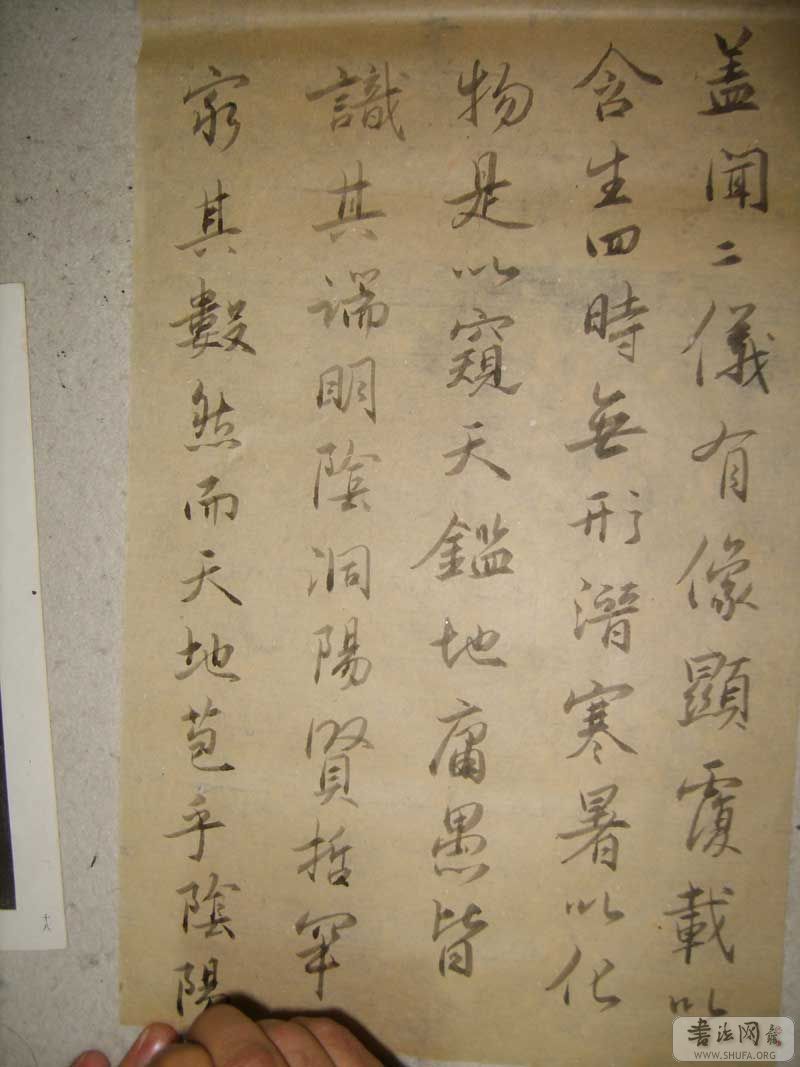 盖聞二儀有像顯覆載以
含生四時無形潛寒暑以化
物是以窺天鑑地庸愚皆
識其端明陰洞陽賢哲罕
窮其數然而天地苞乎陰陽
十八
書法网
WWW.SHUFA.ORG